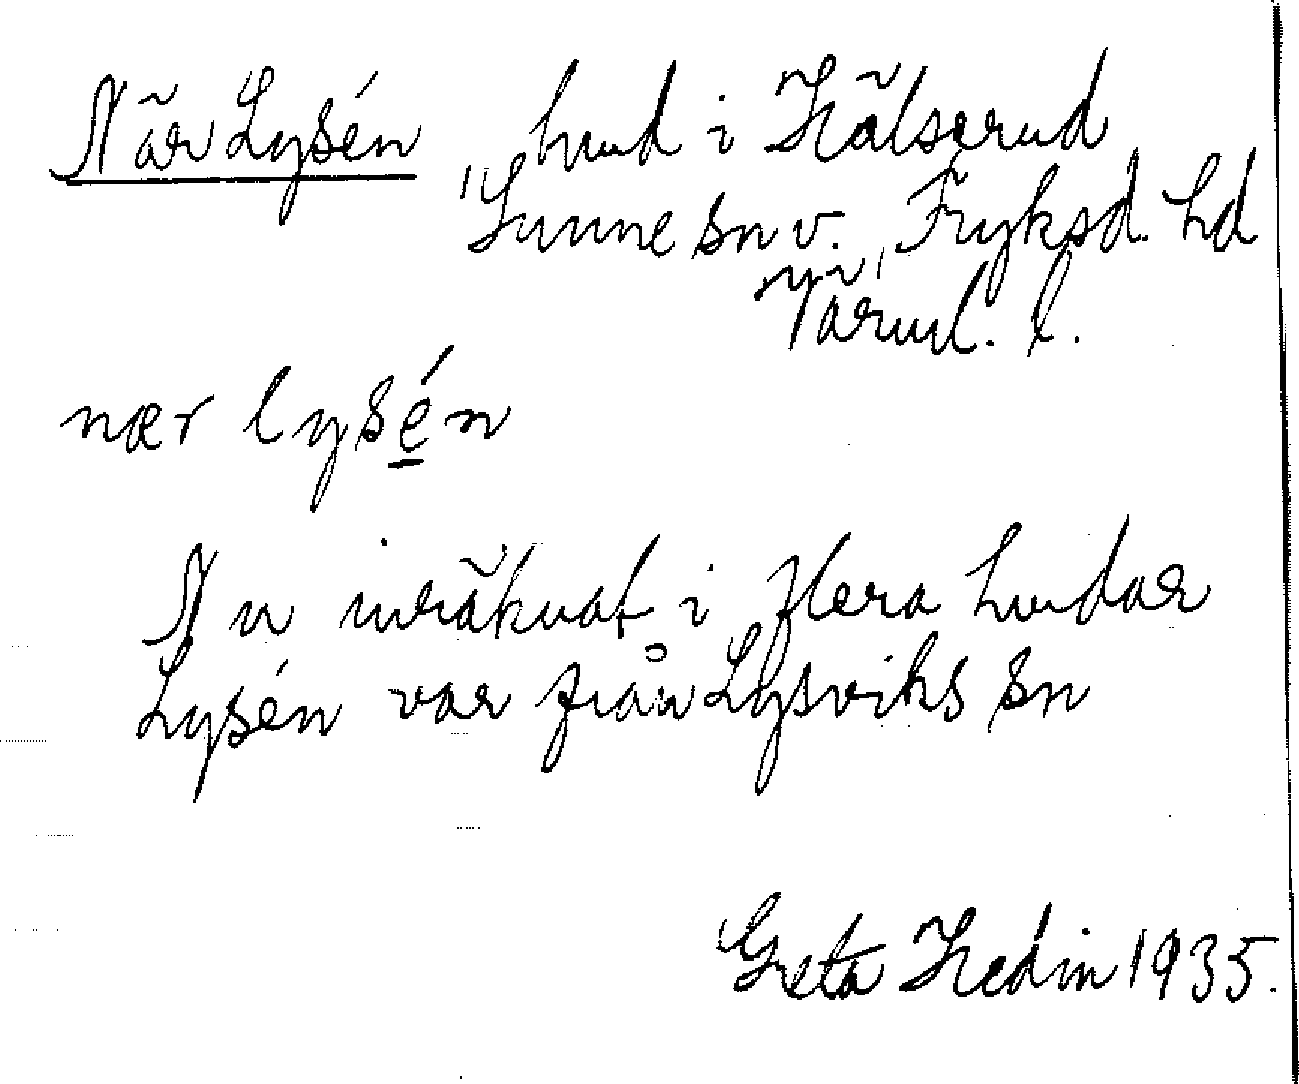 När Lysén lund i Hälserud
Sunne sn v. Fryksd. hd
Värml. l.
nær lysén
Nu inräknat i flera lindor
Lysén var från Lysviks sn
Greta Hedin 1935.